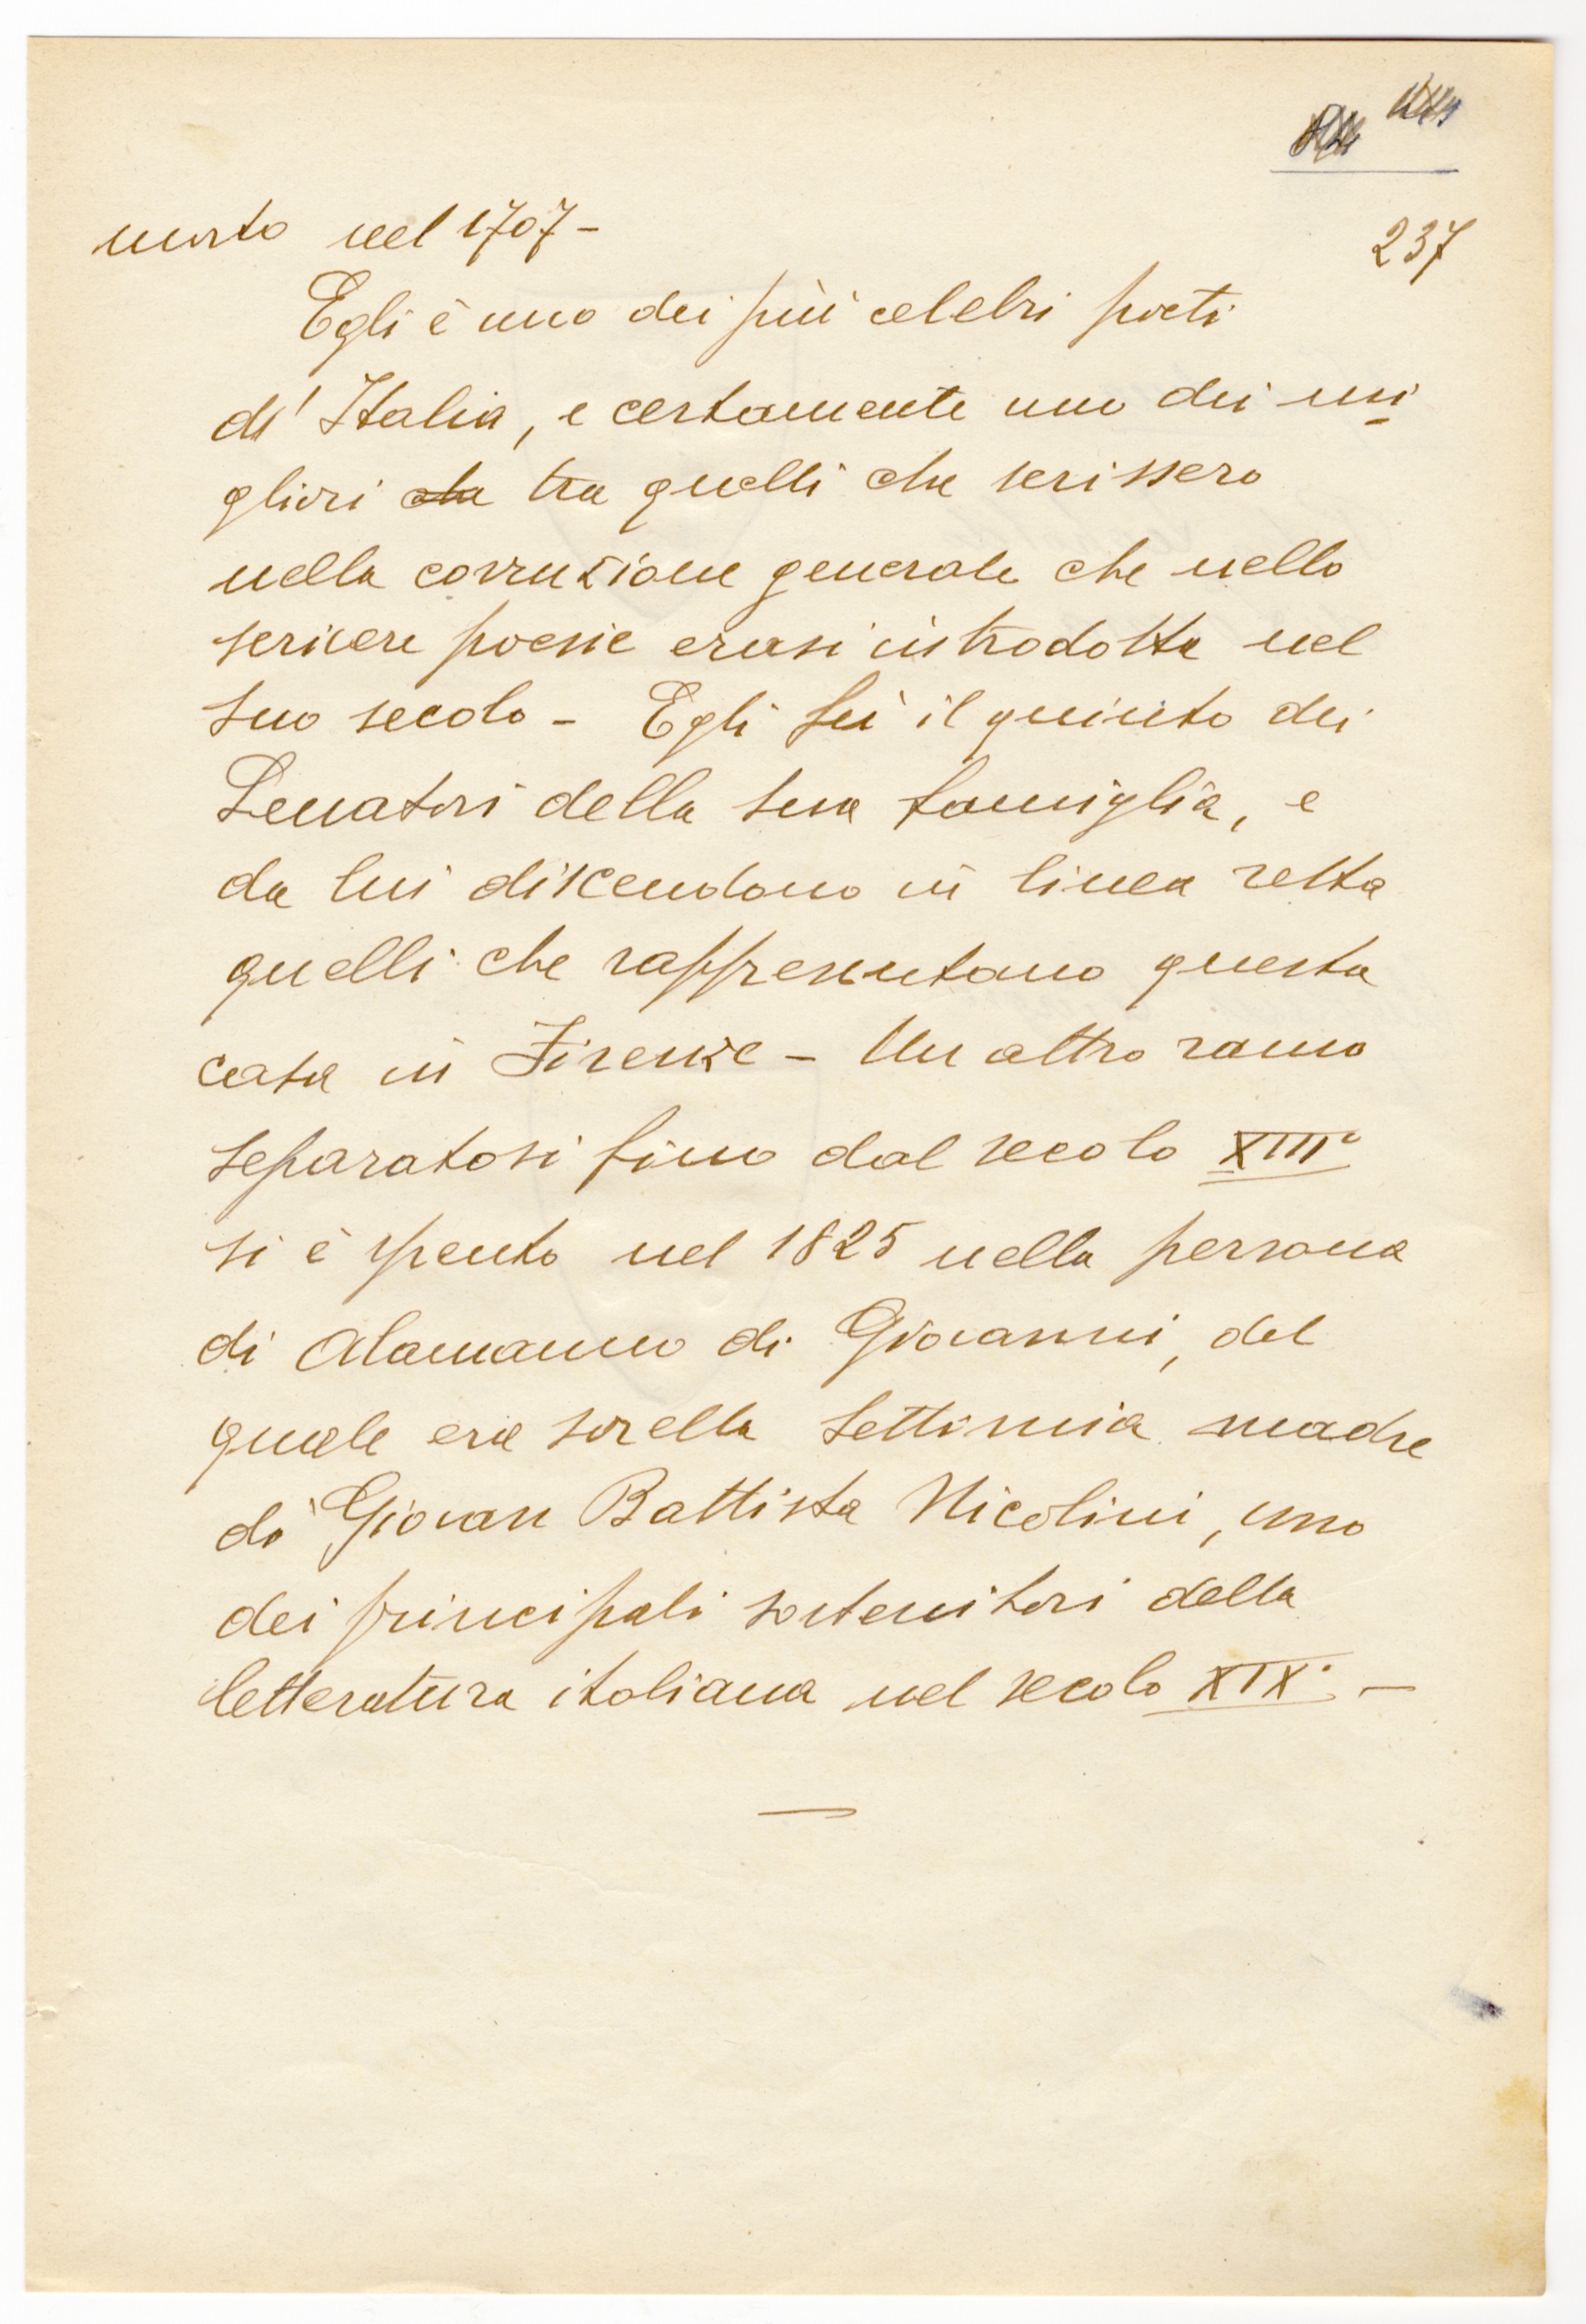 237
morto nel 1707 -
Egli è uno dei più celebri poeti
d' Italia, e certamente uno dei mi
gliori tra quelli che scrissero
nella corruzione generale che nello
scrivere poesie erasi introdotta nel
suo secolo - Egli fù il quinto dei
Senatori della sua famiglia, e
da lui discendono in linea retta
quelli che rappresentano questa
casa in Firenze - Un altro ramo
separatosi fino dal secolo XIII°
si è spento nel 1825 nella persona
di Alamanno di Giovanni, del
quale era sorella Settimia madre
di Giovan Battista Nicolini, uno
dei principali sostenitori della
letteratura italiana nel secolo XIX° -